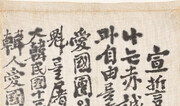 宣誓
나는赤誠
과自由를
愛國團의
魁를屠
大韓民國
韓人愛國